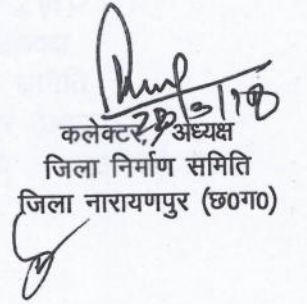 28/3/18
कलेक्टर, अध्यक्ष
जिला निर्माण समिति
जिला नारायणपुर (छ0ग0)